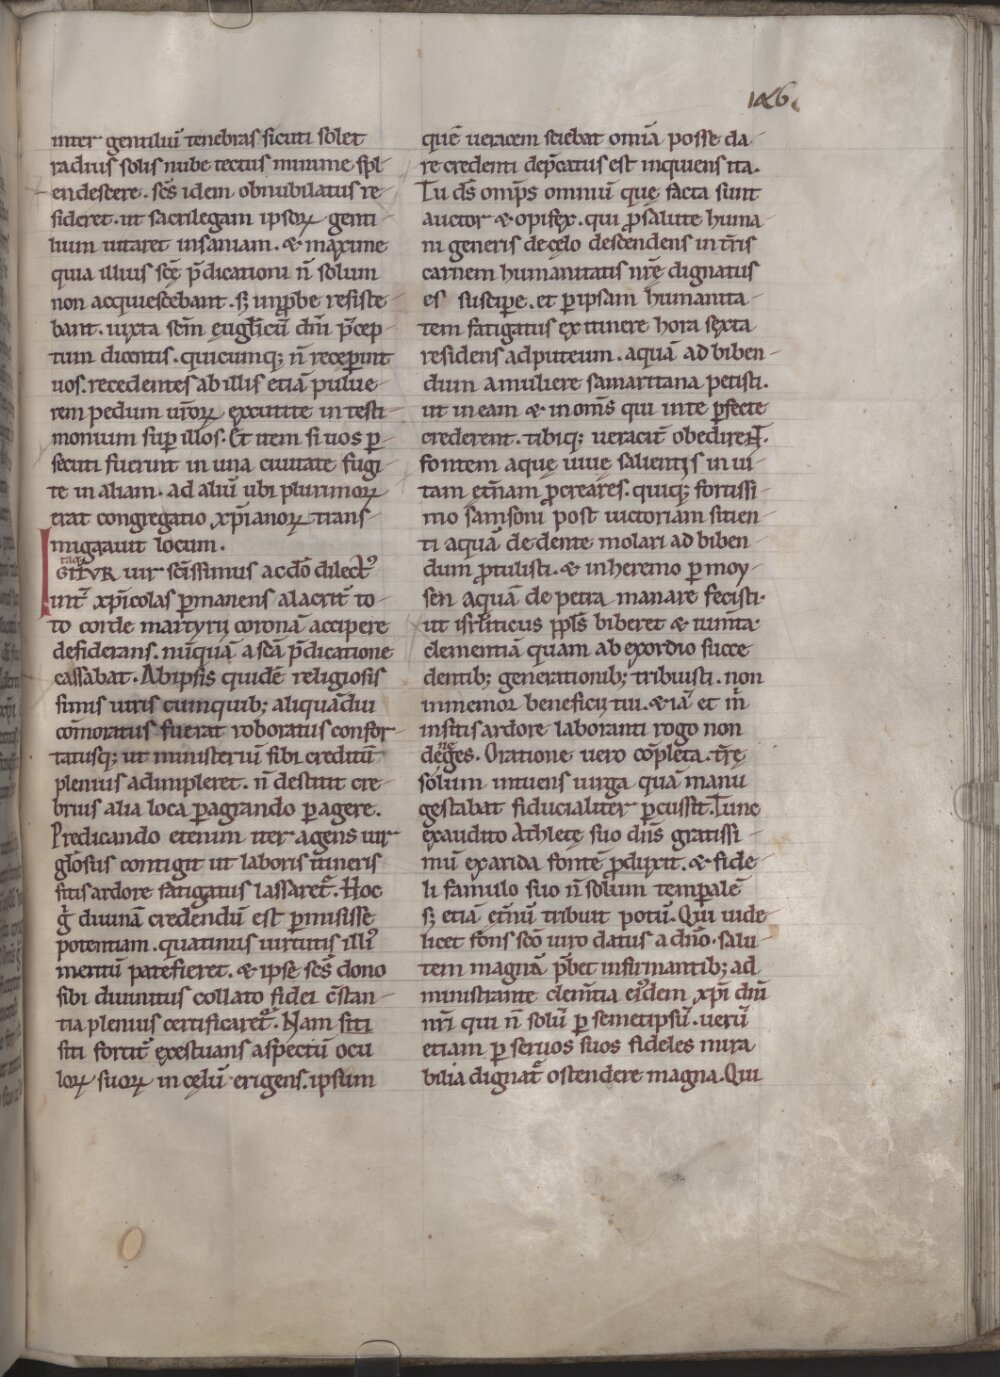 146.
inter gentiliū tenebras sicuti solet
radius solis nube tectus minime spl-
endescere. scs̄ idem obnubilatus re-
sideret. ut sacrilegam ipsoꝝ genti-
lium uitaret insaniam. & maxime
quia illius scę̄ p̄dicationi n̄ solum
non acquiescebant. sꝫ inꝓbe resiste-
bant. iuxta scm̄ euglicū dni p̄cep-
tum dicentis. quicumqꝫ n̄ receꝑint
uos. recedentes ab illis etiā pulue-
rem pedum ur̄oꝝ excutite in testi-
monium suꝑ illos. Et item si uos ꝑ-
secuti fuerint in una ciuitate fugi-
te in aliam. ad aliū ubi plurimoꝝ
erat congregatio xp̄ianoꝝ trans-
migrauit locum.
IGITVR taq; uir scīssimus ac dō dilect᷒
int̄ xp̄icolas ꝑmanens alacrit̄ to-
to corde martyrii coronā accipere
desiderans. nūquā a scā p̄dicatione
cassabat. Ab ipsis quidē religiosis
simis uiris cum quibꝫ aliquādiu
cōmoratus fuerat roboratus confor-
tatusqꝫ ut ministeriū sibi creditū
plenius adimpleret. n̄ destitit cre-
brius alia loca ꝑagrando ꝑagere.
Predicando etenim iter agens uir
gl̄osus contigit ut laboris itineris
sitis ardore fatigatus lassaret᷑. Hoc
g̊ diuinā credendū est ꝑmisisse
potentiam. quatinus uirtutis illi᷒
meritū patefieret. & ipse scs̄ dono
sibi diuinitus collato fidei c̄stan-
tia plenius certificaret᷑. Nam siti
siti fortit̄ exestuans aspectū ocu
loꝝ suoꝝ in cęlū erigens. ipsum
quē ueracem sciebat omīa posse da-
re credenti dep̄catus est inquiens ita.
Tu ds̄ omp̄s omniū quę facta sunt
auctor & opifex. qui ꝓ salute huma-
ni generis de cęlo descendens in tr̄is
carnem humanitatis nr̄ę dignatus
es suscipe. et ꝑ ipsam humanita-
tem fatigatus ex itinere hora sexta
residens ad puteum. aquā ad biben-
dum a muliere samaritana petisti.
ut in eam & in om̄s qui in te ꝑfecte
crederent. tibiqꝫ ueracit̄ obedirent.
fontem aquę uiuę salientis in ui-
tam etn̄am ꝓcreares. quiqꝫ fortissi-
mo samsoni post uictoriam sitien-
ti aquā de dente molari ad biben-
dum ꝓtulisti. & in heremo ꝑ moy-
sen aquā de petra manare fecisti.
ut isrl̄iticus ppl̄s biberet & iuxta
clementiā quam ab exordio succe
dentibꝫ generationibꝫ tribuisti. non
inmemor beneficii tui. & iā et m̄
insitis ardore laboranti rogo non
deneges. Oratione uero cōpleta. tr̄ę
solum intuens uirga quā manu
gestabat fiducialiter ꝑcussit. Tunc
exaudito athletę suo dn̄s gratissi-
mū ex arida fontē ꝓduxit. & fide-
li famulo suo n̄ solum tempalē
sꝫ etiā etn̄ū tribuit potū. Qui uide-
licet fons scō uiro datus a dn̄o. salu-
tem magnā p̄bet infirmantibꝫ ad
ministrante clem̄tia ei᷒dem xp̄i dn̄i
nr̄i qui n̄ solū ꝑ semetipsū. uerū
etiam ꝑ seruos suos fideles mira
bilia dignat᷑ ostendere magna. Qui